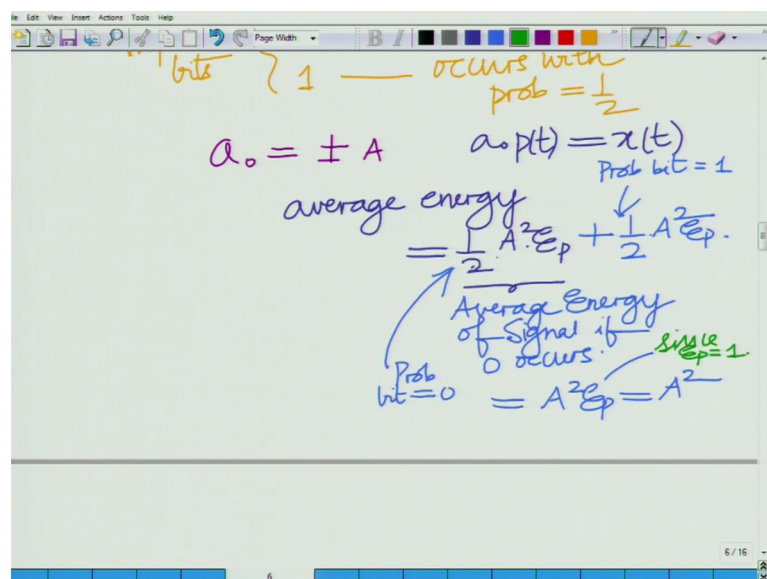 Edit View Insert Actions Tools Help
Page Width
bits } 1 — occurs with
prob = 1/2
a₀ = ± A
a₀ p(t) = x(t)
Prob bit = 1
average energy
= 1/2 A² Ep + 1/2 A² Ep.
Average Energy
of Signal if
0 occurs.
Prob
bit = 0
since
Ep = 1.
= A² Ep = A²
6 / 16
6